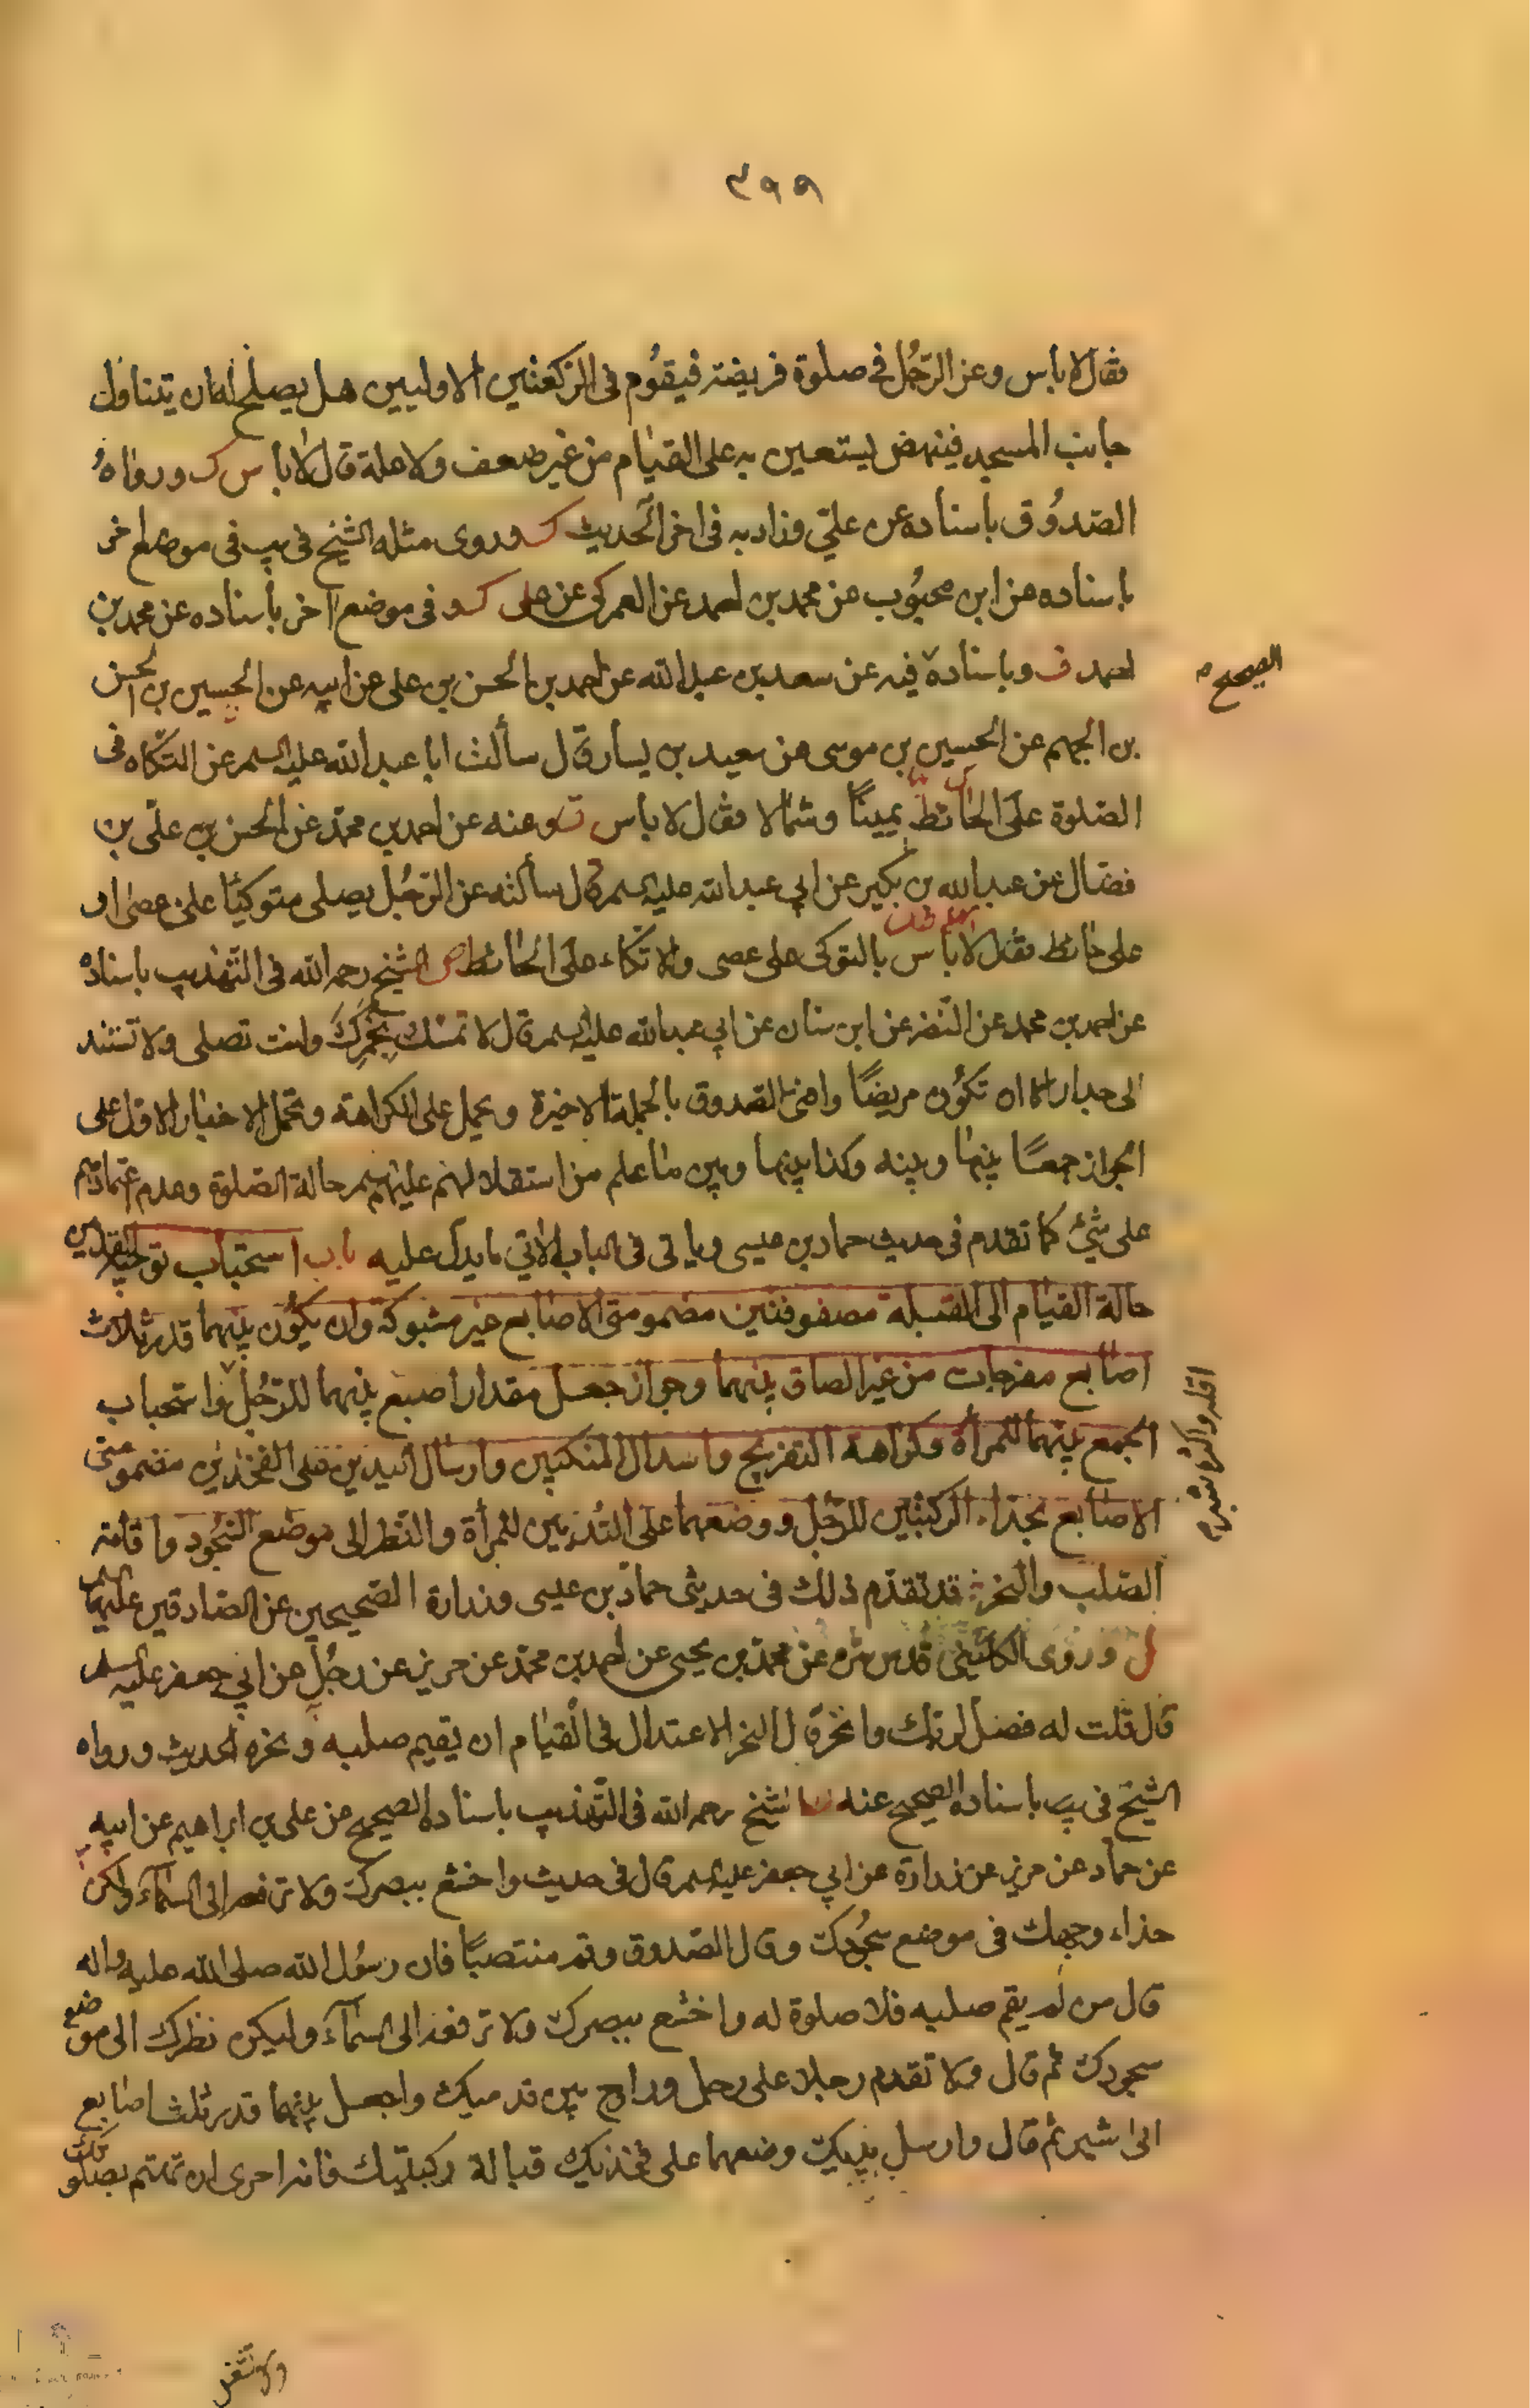 ٣٩٩
فقال لا باس وعن الرّجُل فى صلوة فريضة فيقُوم فى الرّكعتين الاوليين هل يصلح له ان يتناول
جانب المسجد فينهض يستعين به على القيام من غير ضعف ولا علة قال لا باس ك ورواهُ
الصّدُوق باسناده عن علىّ وزاد به فى اخر الحديث ك وروى مثله الشّيخ فى يب فى موضع اخر
باسناده عن ابن محبُوب عن محمد بن احمد عن العمركى عن على ك و فى موضع آخر باسناده عن محمد بن
احمد ف وباسناده فيه عن سعد بن عبد الله عن احمد بن الحسن بن على عن ابيه عن الحسين بن الحسن
الصحيح م
بن الجهم عن الحسين بن موسى عن سعيد بن يسار قال سألت ابا عبد الله عليه السلم عن التّكاه فى
الصّلوة على الحائط يمينًا وشمالا فقال لا باس ق وعنه عن احمد بن محمّد عن الحسن بن علىّ بن
فضّال عن عبد الله بن بكير عن ابى عبد الله عليه السلم قال سألته عن الرّجُل يصلى متوكّيًا على عصى او
على حائط فقال لا باس بالتوكى على عصى والاتّكاء على الحائط ص الشيخ رحمه الله فى التّهذيب باسناده
عن احمد بن محمد عن النّضر عن ابن سنان عن ابى عبد الله عليه السلم قال لا تمسّك بِخَمَرِكَ وانت تصلى ولا تستند
الى جدار الا ان تكُون مريضًا وافتى الصّدوق بالجملة الاخيرة ويحمل على الكراهة وتحمل الاخبار الاول على
الجواز جمعًا بينها وبينه وكذا بينها وبين ما علم من استقلالهم عليهم السلم حالة الصّلوة وعدم اعتمادهم
على شئ كما تقدم فى حديث حماد بن عيسى ويأتى فى الباب الاتى ما يدل عليه باب استحباب توجيه القدمين
حالة القيام الى القبلة مصفوفتين مضمومتى الاصابع غير مشبوكة وان يكُون بينهما قدر ثلاث
اصابع مفرجات من غير الصاق بينهما وجواز جعل مقدار اصبع بينهما للرّجُل واستحباب
اقله واكثره شبر م
الجمع بينهما للمرأة وكراهة التفريج واسدال المنكبين وارسال اليدين على الفخذين مضمومتى
الاصابع بحذاء الركبتين للرّجل ووضعهما على الثّديين للمرأة والنّظر الى موضع السّجُود واقامة
الصّلب والنحر قد تقدّم ذلك فى حديثى حماد بن عيسى وزرارة الصّحيحين عن الصّادقين عليهما السلم
ل وروى الكلينى قدس سره عن محمد بن يحيى عن احمد بن محمّد عن حريز عن رجُلٍ عن ابى جعفر عليه السلم
قال قلت له فصل لربك وانحر قال النحر الاعتدال فى القيام ان يقيم صلبه ونحره الحديث ورواه
الشّيخ فى يب باسناده الصحيح عنه الشيخ رحمه الله فى التّهذيب باسناده الصحيح عن على بن ابراهيم عن ابيه
عن حماد عن حريز عن زرارة عن ابى جعفر عليه السلم قال فى حديث واخشع ببصرك ولا ترفعه الى السّمآء وليكن
حذاء وجهك فى موضع سجُودك وقال الصّدوق وقم منتصبًا فان رسُول الله صلى الله عليه واله
قال من لم يقم صلبه فلا صلوة له واخشع ببصرك ولا ترفعه الى السّمآء وليكن نظرك الى موضع
سجودك ثم قال ولا تقدم رجلا على رجل وراوح بين قدميك واجعل بينهما قدر ثلث اصابع
الى شبر ثم قال وارسل يديك وضعهما على فخذيك قبالة ركبتيك فانه احرى ان تهتم بصلوتك
ولا تشغل